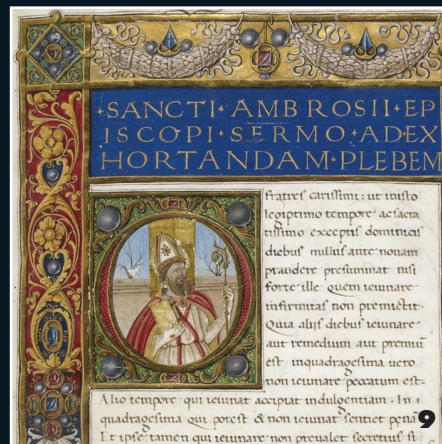 SANCTI·AMBROSII·EP
ISCOPI·SERMO·ADEX
HORTANDAM·PLEBEM
fratres carissimi: ut iusto
legiptimo tempore ac sacra
tissimo exceptis dominicis
diebus nullus ante nonam
prandere presummat nisi
forte ille quem ieiunare
infirmitas non permictit
Quia alijs diebus ieiunare
aut remedium aut premiu
est inquadragesima uero
non ieiunare peccatum est
Alio tempore qui ieiunat accipiat indulgentiam. In
quadragesima qui potest & non ieiunat sentiet pena
Et ipse tamen qui ieiunare non preualet secretius si
9